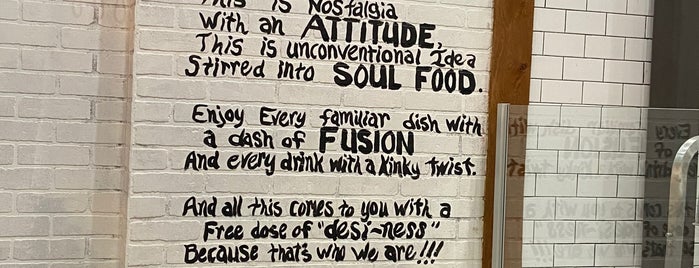 This is Nostalgia
With an ATTITUDE,
This is unconventional Idea
Stirred into SOUL FOOD.
Enjoy Every familiar dish with
a dash of FUSION
And every drink with a kinky twist.
And all this comes to you with a
Free dose of "desi-ness"
Because that's who we are!!!